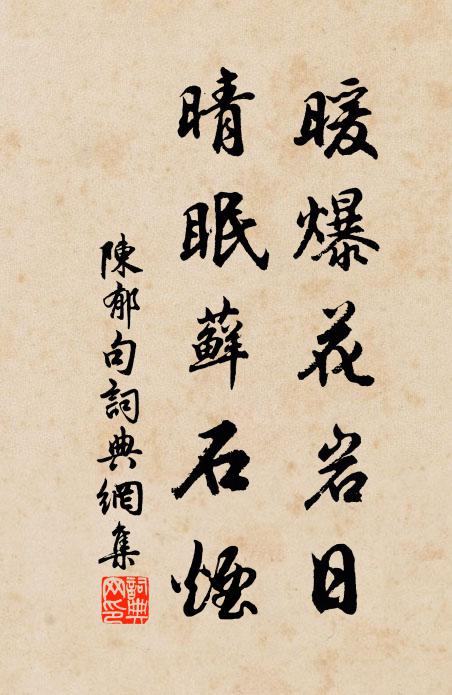 暖爆花岩日
晴眠蘚石煙
陳郁句詞典網集
詞典网印